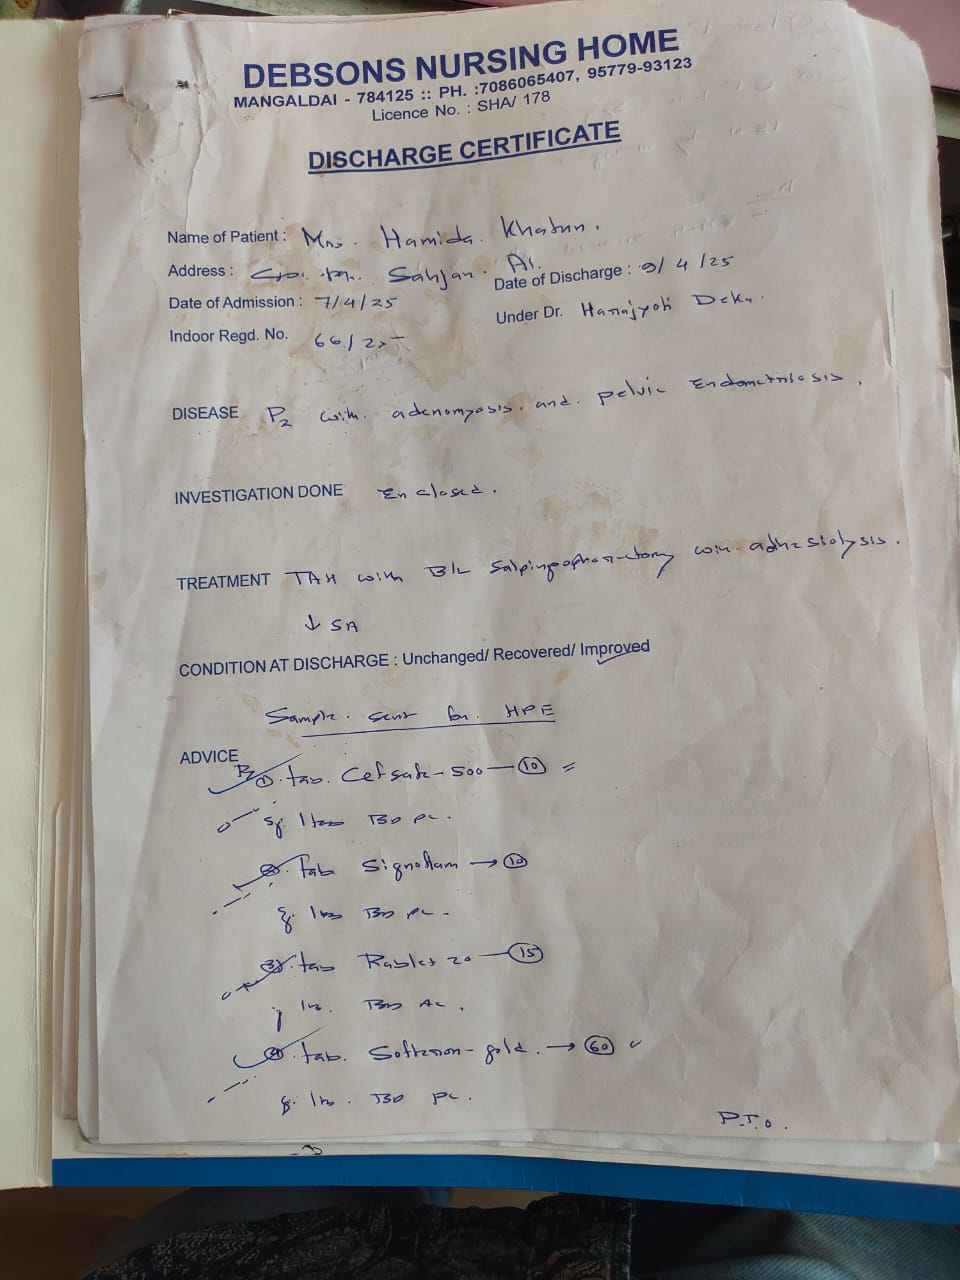 DEBSONS NURSING HOME
MANGALDAI - 784125 :: PH. :7086065407, 95779-93123
Licence No. : SHA/ 178
DISCHARGE CERTIFICATE
Name of Patient : Mrs. Hamida Khatun.
Address : Sahjan Ali.
Date of Discharge : 9/4/25
Date of Admission : 7/4/25
Under Dr. Deka.
Indoor Regd. No. 66/25
DISEASE P2 with adenomyosis. and pelvic Endometriosis.
INVESTIGATION DONE Enclosed.
TREATMENT TAH with B/L with adhesiolysis.
↓ SA
CONDITION AT DISCHARGE : Unchanged/ Recovered/ Improved
Sample sent for HPE
ADVICE
Rx ① tab. -500 — ⑩
1 tab BD pc.
② tab → ⑩
1 tab BD pc.
③ tab 20 — ⑮
1 tab BD AC.
④ tab. gold. → 60
1 tab. BD pc.
P.T.O.